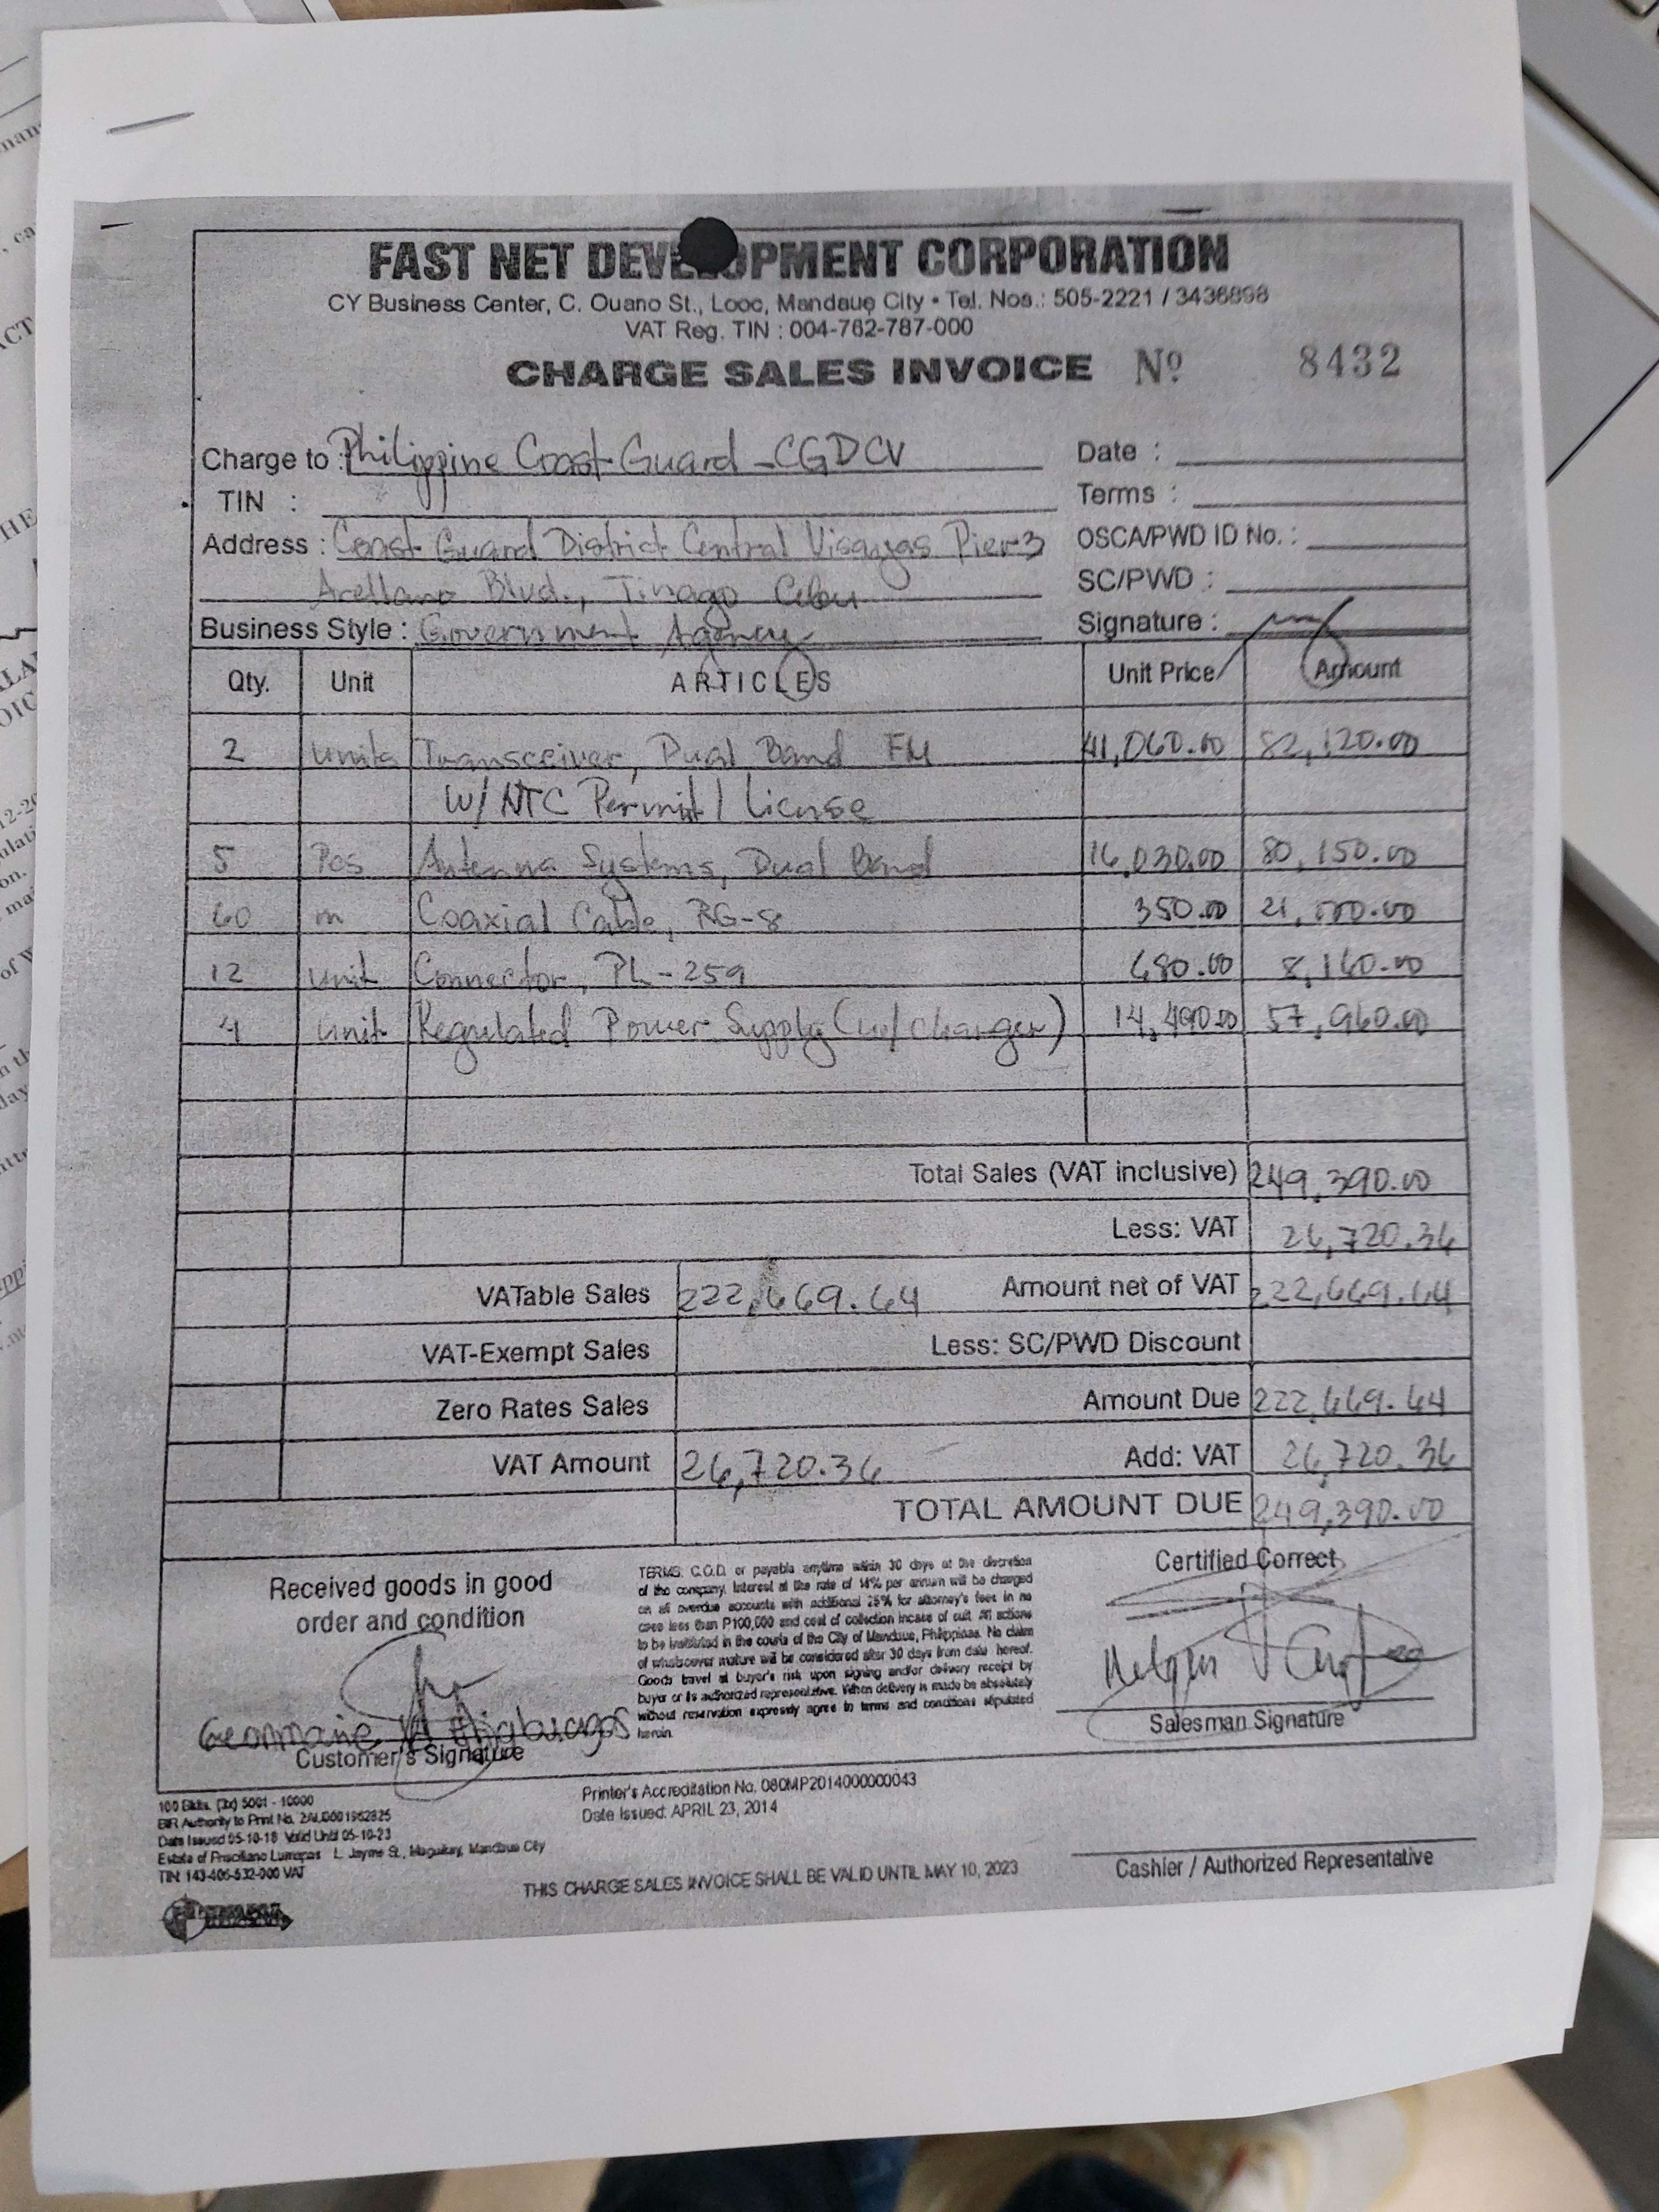 FAST NET DEVE OPMENT CORPORATION
CY Business Center, C. Ouano St., Looc, Mandaue City • Tel. Nos.: 505-2221 / 3436898
VAT Reg. TIN : 004-762-787-000
CHARGE SALES INVOICE Nº 8432
Charge to : Philippine Coast Guard - CGDCV Date :
TIN : Terms :
Address : Coast Guard District Central Visayas Pier 3 OSCA/PWD ID No. :
Arellano Blvd., Tinago Cebu SC/PWD :
Business Style : Government Agency Signature :
Qty. Unit ARTICLES Unit Price Amount
2 units Transceiver, Dual Band FM 41,060.00 82,120.00
W/ NTC Permit / License
5 Pcs Antenna Systems, Dual Band 16,030.00 80,150.00
60 m Coaxial Cable, RG-8 350.00 21,000.00
12 unit Connector, PL-259 680.00 8,160.00
4 unit Regulated Power Supply (w/ charger) 14,490.00 57,960.00
Total Sales (VAT inclusive) 249,390.00
Less: VAT 26,720.36
VATable Sales 222,669.64 Amount net of VAT 222,669.64
VAT-Exempt Sales Less: SC/PWD Discount
Zero Rates Sales Amount Due 222,669.64
VAT Amount 26,720.36 Add: VAT 26,720.36
TOTAL AMOUNT DUE 249,390.00
Received goods in good
order and condition
Customer's Signature
TERMS: C.O.D. or payable anytime within 30 days at the discretion
of the company. Interest at the rate of 14% per annum will be charged
on all overdue accounts with additional 25% for attorney's fees in no
case less than P100,000 and cost of collection incase of suit. All actions
to be instituted in the courts of the City of Mandaue, Philippines. No claim
of whatsoever mature will be considered after 30 days from date hereof.
Goods travel at buyer's risk upon signing and/or delivery receipt by
buyer or its authorized representative. When delivery is made be absolutely
without reservation expressly agree to terms and conditions stipulated
herein.
Certified Correct
Salesman Signature
100 Bklts. (3x) 5001 - 10000
BIR Authority to Print No. 2AU0001962825
Date Issued 05-10-18 Valid Until 05-10-23
Estate of Prisciliano Lumapas L. Jayme St., Maguikay, Mandaue City
TIN: 143-406-532-000 VAT
Printer's Accreditation No. 080MP2014000000043
Date Issued: APRIL 23, 2014
Cashier / Authorized Representative
THIS CHARGE SALES INVOICE SHALL BE VALID UNTIL MAY 10, 2023